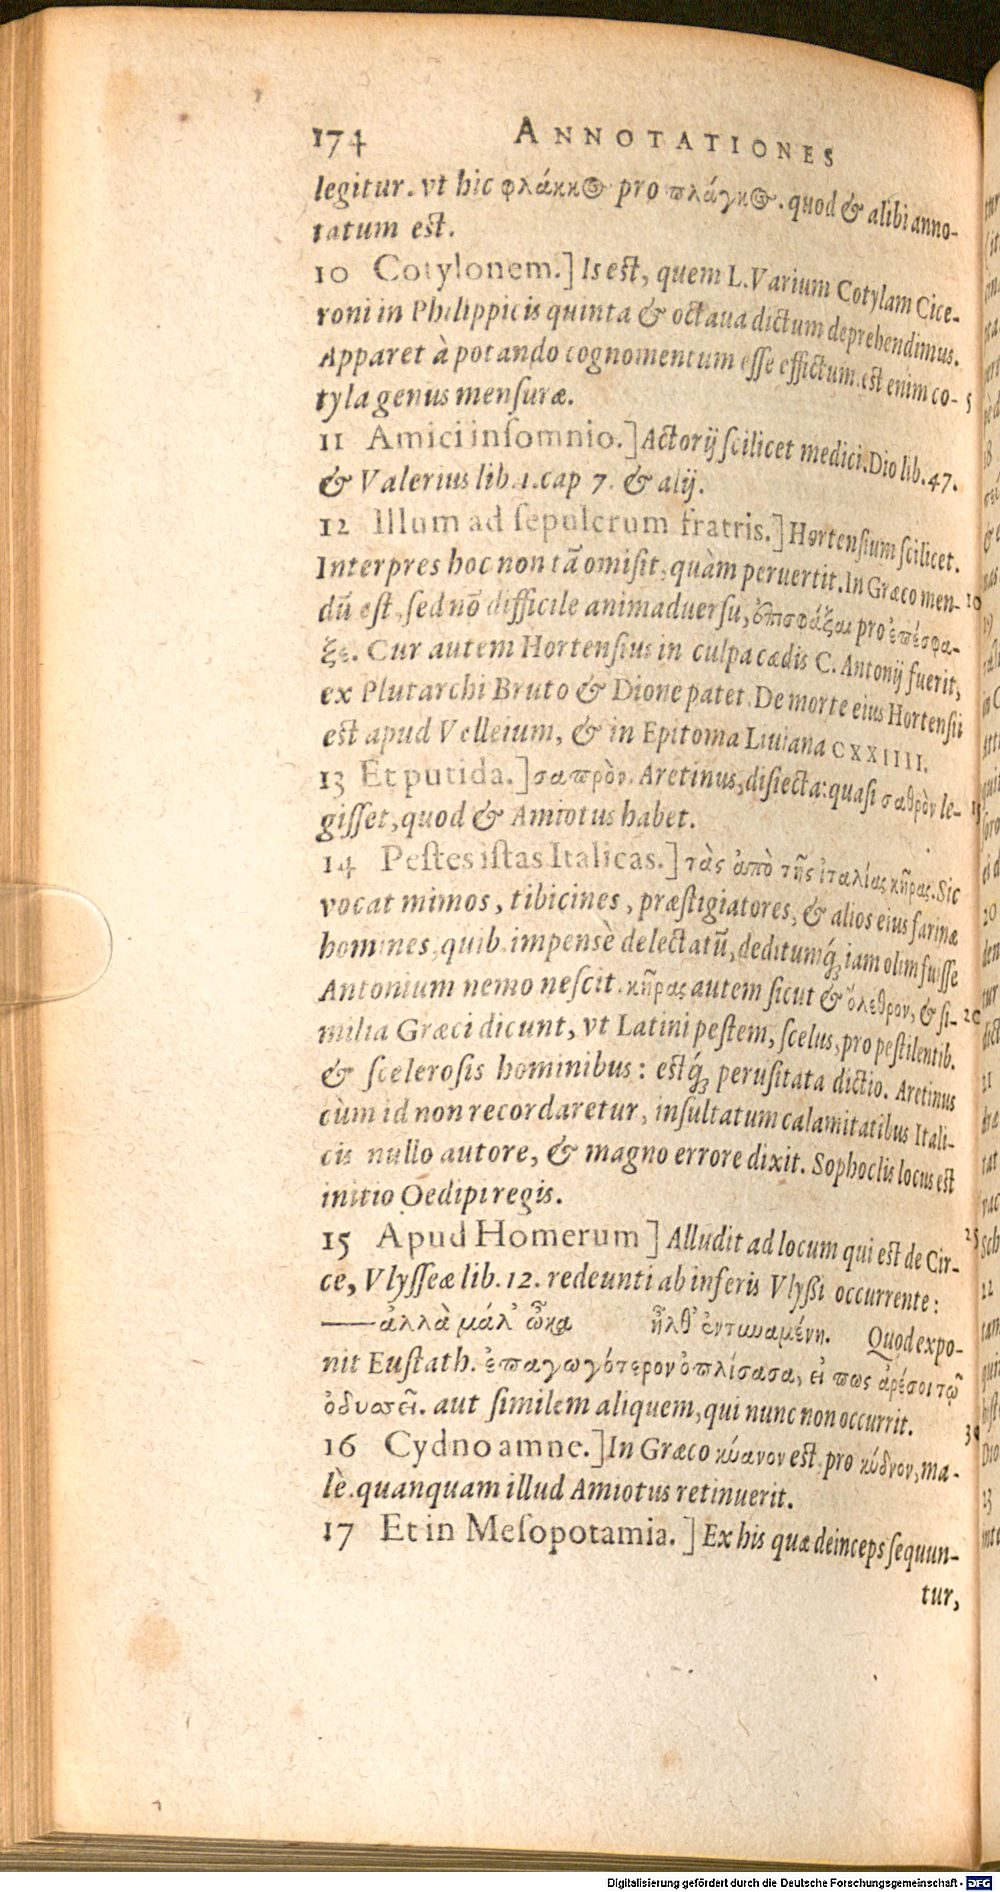 174 ANNOTATIONES
legitur. vt hic φλάκκος pro πλάγκος. quod & alibi anno-
tatum est.
10 Cotylonem.] Is est, quem L. Varium Cotylam Cice-
roni in Philippicis quinta & octaua dictum deprehendimus.
Apparet à potando cognomentum esse effictum. est enim co- 5
tyla genus mensuræ.
11 Amici insomnio.] Actorij scilicet medici. Dio lib. 47.
& Valerius lib. 1. cap 7. & alij.
12 Illum ad sepulcrum fratris.] Hortensium scilicet.
Interpres hoc non tã omisit, quàm peruertit. In Græco men- 10
dũ est, sed nõ difficile animaduersu, ἐπισφάξαι pro ἐπέσφα-
ξε. Cur autem Hortensius in culpa cædis C. Antonij fuerit,
ex Plutarchi Bruto & Dione patet. De morte eius Hortensii
est apud Velleium, & in Epitoma Liuiana CXXIIII.
13 Et putida.] σαπρὸν. Aretinus, disiecta: quasi σαθρὸν le- 15
gisset, quod & Amiotus habet.
14 Pestes istas Italicas.] τὰς ἀπὸ τῆς ἰταλίας κῆρας. Sic
vocat mimos, tibicines, præstigiatores, & alios eius farinæ
homines, quib. impensè delectatũ, deditumq́; iam olim fuisse
Antonium nemo nescit. κῆρας autem sicut & ὄλεθρον, & si- 20
milia Græci dicunt, vt Latini pestem, scelus, pro pestilentib.
& scelerosis hominibus: estq́; perusitata dictio. Aretinus
cùm id non recordaretur, insultatum calamitatibus Itali-
cis nullo autore, & magno errore dixit. Sophoclis locus est
initio Oedipi regis.
15 Apud Homerum] Alludit ad locum qui est de Cir- 25
ce, Vlysseæ lib. 12. redeunti ab inferis Vlyßi occurrente:
—ἀλλὰ μάλ᾽ ὦκα ἦλθ᾽ ἐντυναμένη. Quod expo-
nit Eustath. ἐπαγωγότερον ὁπλίσασα, εἰ πως ἀρέσοι τῷ
ὀδυσσεῖ. aut similem aliquem, qui nunc non occurrit.
16 Cydno amne.] In Græco κύανον est pro κύδνον, ma- 30
lè. quanquam illud Amiotus retinuerit.
17 Et in Mesopotamia.] Ex his quæ deinceps sequun-
tur,
Digitalisierung gefördert durch die Deutsche Forschungsgemeinschaft - DFG